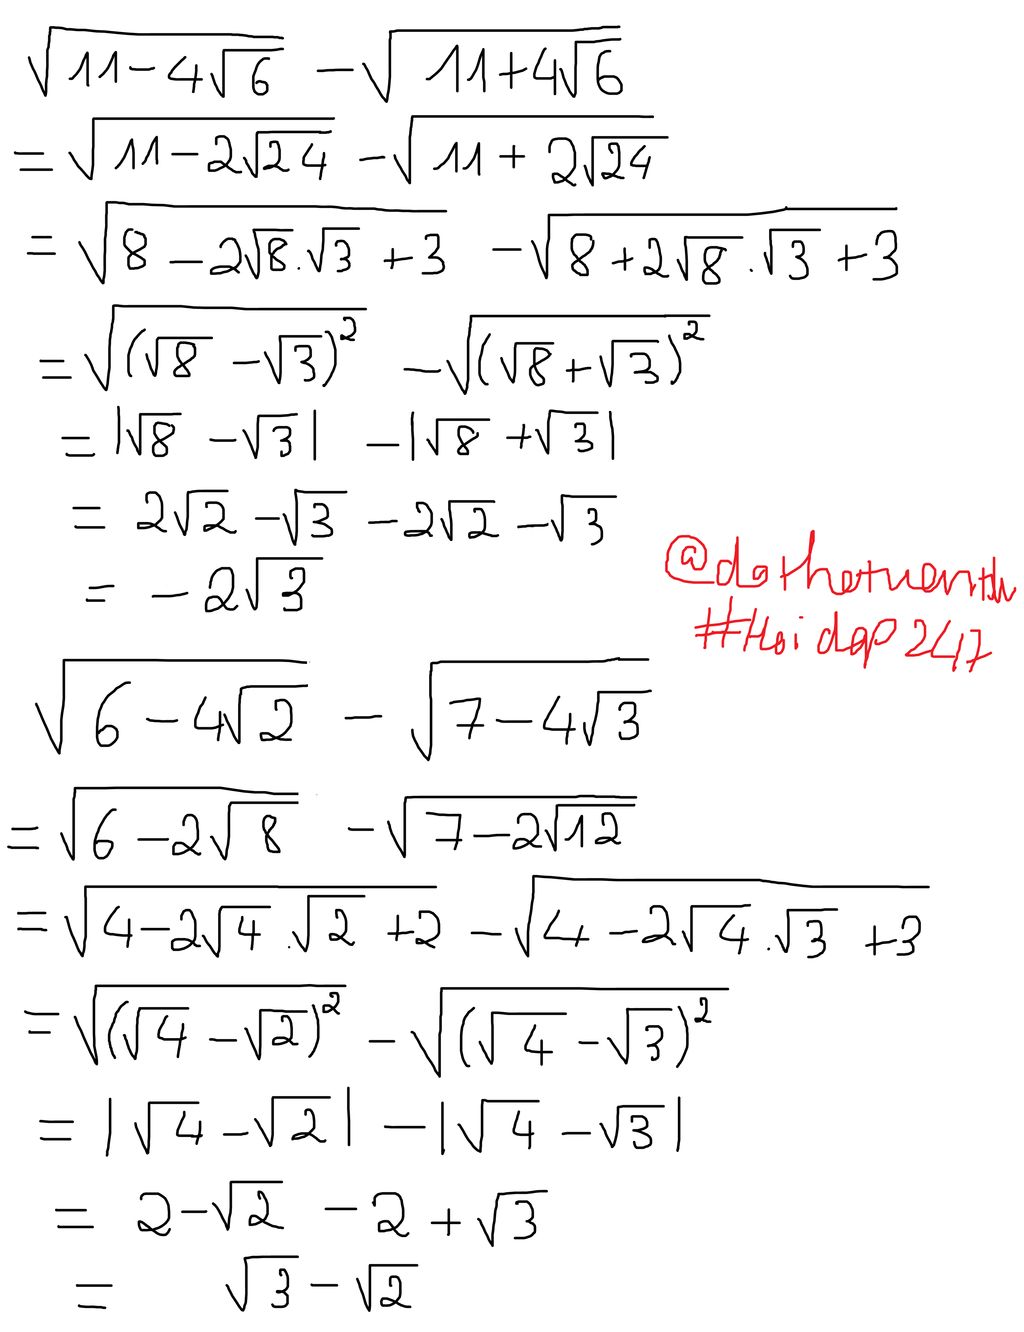 √(11-4√6) - √(11+4√6)
= √(11-2√24) - √(11+2√24)
= √(8-2√8.√3+3) - √(8+2√8.√3+3)
= √((√8-√3)²) - √((√8+√3)²)
= |√8-√3| - |√8+√3|
= 2√2-√3-2√2-√3
= -2√3
@dothetuenth
#Hoidap247
√(6-4√2) - √(7-4√3)
= √(6-2√8) - √(7-2√12)
= √(4-2√4.√2+2) - √(4-2√4.√3+3)
= √((√4-√2)²) - √((√4-√3)²)
= |√4-√2| - |√4-√3|
= 2-√2-2+√3
= √3-√2